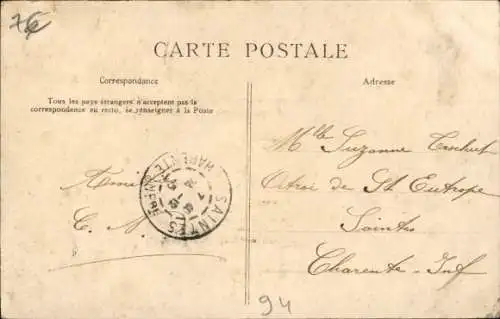 7€
CARTE POSTALE
Correspondance
Adresse
Tous les pays étrangers n'acceptent pas la
correspondance au recto, se renseigner à la Poste
Mlle Suzanne
Octroi de St Eutrope
Saintes
Charente-Inf
SAINTES
CHARENTE INFRE
94